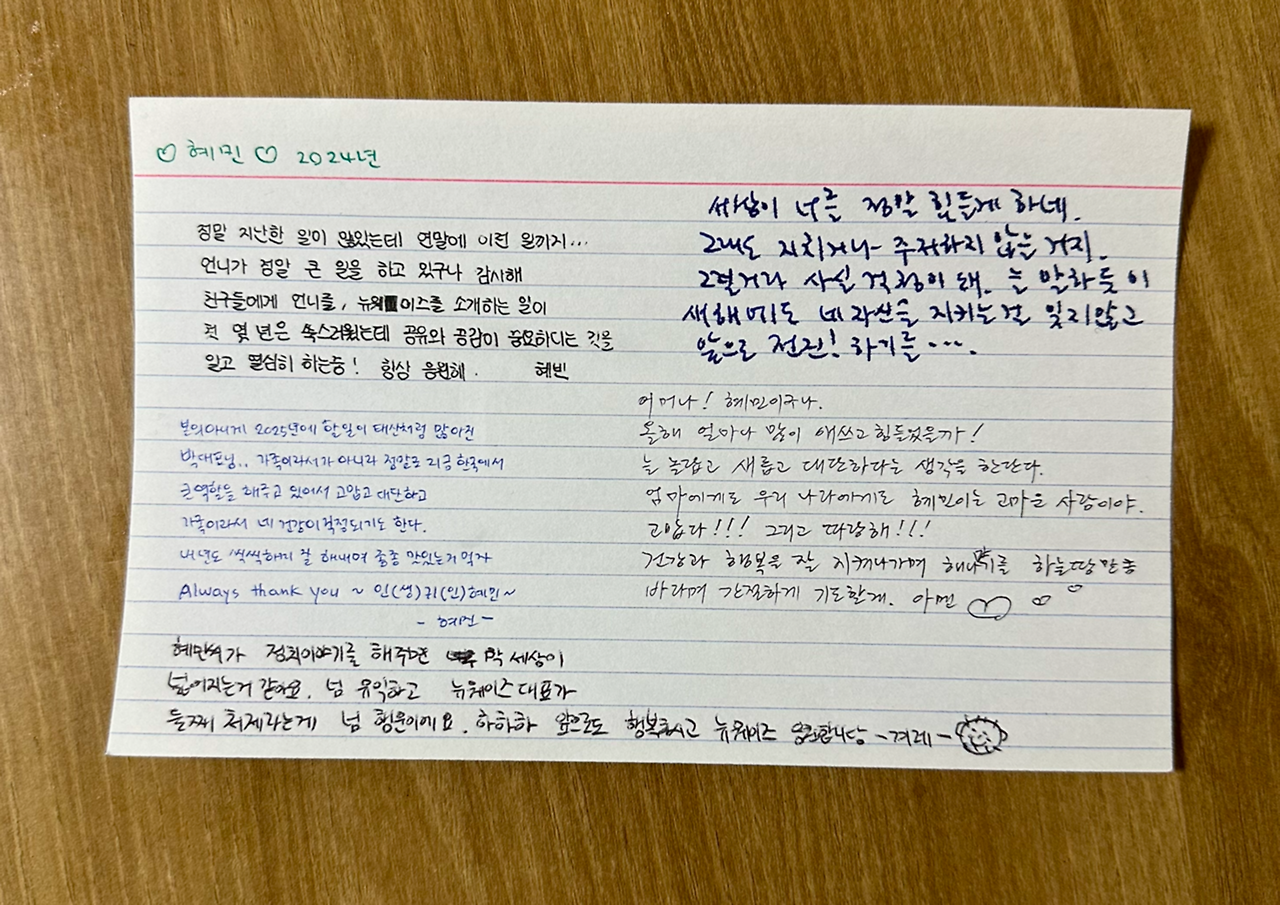 ♡ 혜민 ♡ 2024년
정말 지난한 일이 많았는데 연말에 이런 일까지...
언니가 정말 큰 일을 하고 있구나 감사해
친구들에게 언니를, 뉴웨이즈를 소개하는 일이
첫 몇 년은 쑥스러웠는데 공유와 공감이 중요하다는 것을
알고 열심히 하는중! 항상 응원해. 혜빈
세상이 너를 정말 힘들게 하네.
그래도 지치거나 주저하지 않는 거지.
그럴거라 사실 걱정이 돼. 늘 말하듯이
새해에도 네 자산을 지키는걸 잊지않고
앞으로 전진! 하기를....
본의아니게 2025년에 할일이 태산처럼 많아진
박대표님.. 가족이라서가 아니라 정말로 지금 한국에서
큰역할을 해주고 있어서 고맙고 대단하고
가족이라서 네 건강이 걱정되기도 한다.
내년도 씩씩하게 잘 해내며 종종 맛있는거 먹자
Always thank you ~ 인(생)귀(인)혜민~
- 혜전 -
어머나! 혜민이구나.
올해 얼마나 많이 애쓰고 힘들었을까!
늘 놀랍고 새롭고 대단하다는 생각을 한단다.
엄마에게도 우리 나라에게도 혜민이는 고마운 사람이야.
고맙다!!! 그리고 따랑해!!!
건강과 행복을 잘 지켜나가며 해나가기를 하늘땅만큼
바라며 간절하게 기도할게. 아멘
혜민씨가 정치이야기를 해주면 막 세상이
넓어지는거 같아요. 넘 유익하고 뉴웨이즈 대표가
둘째 처제라는게 넘 행운이에요. 하하하 앞으로도 행복하시고 뉴웨이즈 응원합니당 -겨레-